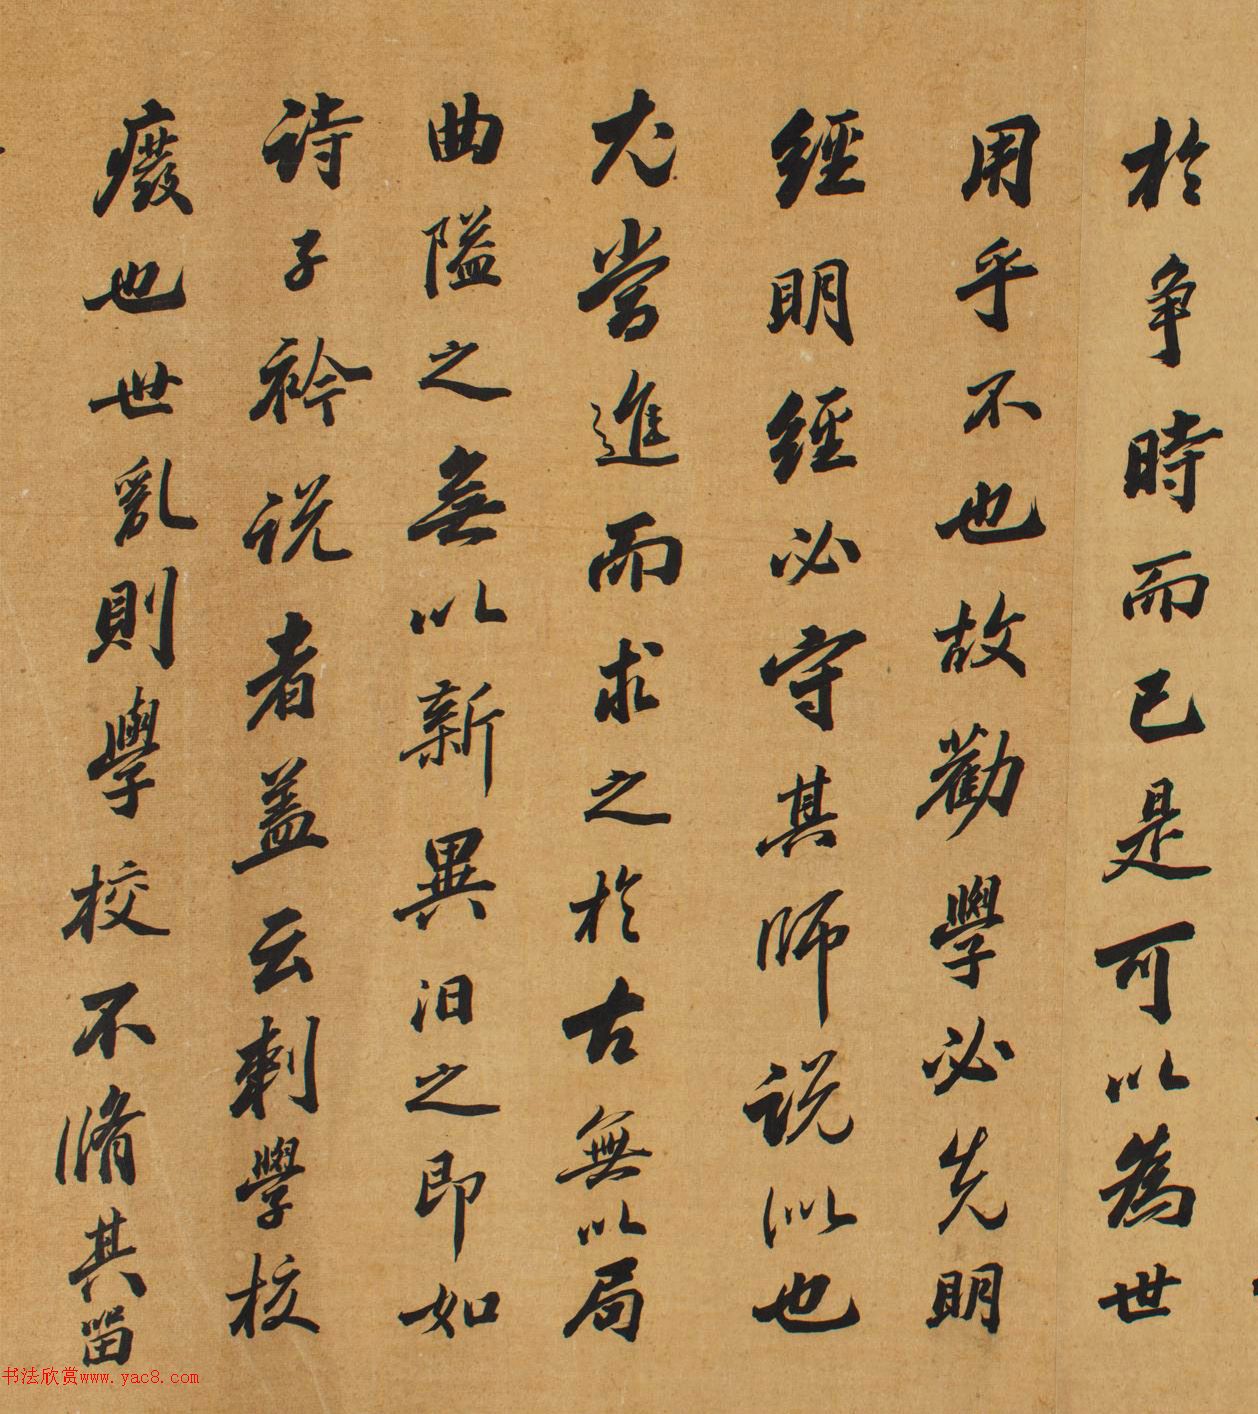 於争時而已是可以為世
用乎不也故勸學必先明
經明經必守其師説似也
尤當進而求之於古無以局
曲隘之無以新異汩之即如
詩子衿説者蓋云刺學校
廢也世亂則學校不脩其留
书法欣赏www.yac8.com